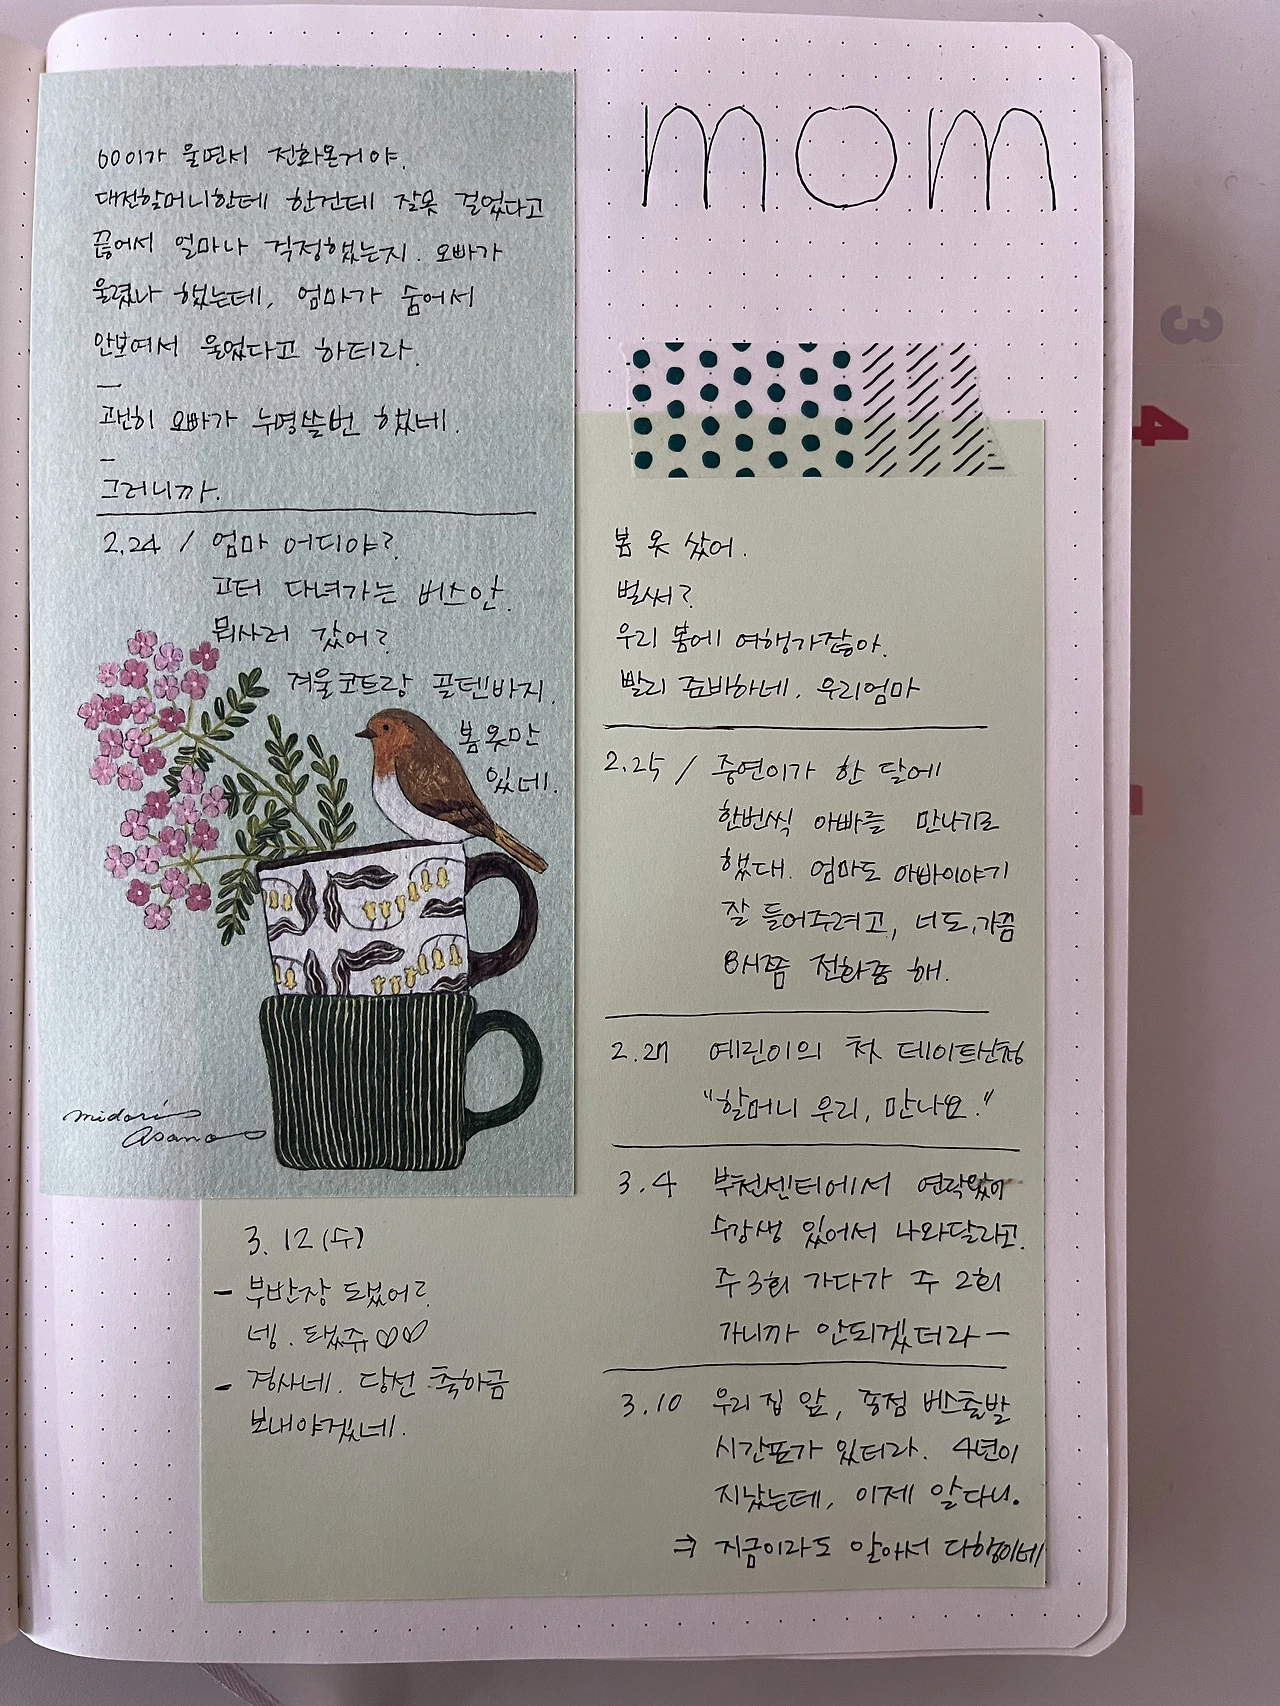 mom
이가 울면서 전화온거야.
대전할머니한테 한건데 잘못 걸었다고
끊어서 얼마나 걱정했는지. 오빠가
울렸나 했는데, 엄마가 숨어서
안보여서 울었다고 하더라.
—
괜히 오빠가 누명쓸번 했네.
–
그러니까.
2.24 / 엄마 어디야?
고터 다녀가는 버스안.
뭐사러 갔어?
겨울코트랑 골덴바지.
봄옷만
있네.
midori
asano
봄 옷 샀어.
벌써?
우리 봄에 여행가잖아.
빨리 준비하네, 우리엄마
2.25 / 중연이가 한 달에
한번씩 아빠를 만나기로
했대. 엄마도 아빠이야기
잘 들어주려고, 너도, 가끔
8시쯤 전화좀 해.
2.27 예린이의 첫 데이트신청
"할머니 우리, 만나요."
3.4 부천센터에서 연락왔어
수강생 있어서 나와달라고.
주3회 가다가 주 2회
가니까 안되겠더라 —
3.10 우리 집 앞, 종점 버스출발
시간표가 있더라. 4년이
지났는데, 이제 알다니.
⇒ 지금이라도 알아서 다행이네
3. 12 (수)
– 부반장 됐어?
넹. 됐쥬♡♡
– 경사네. 당선 축하금
보내야겠네.